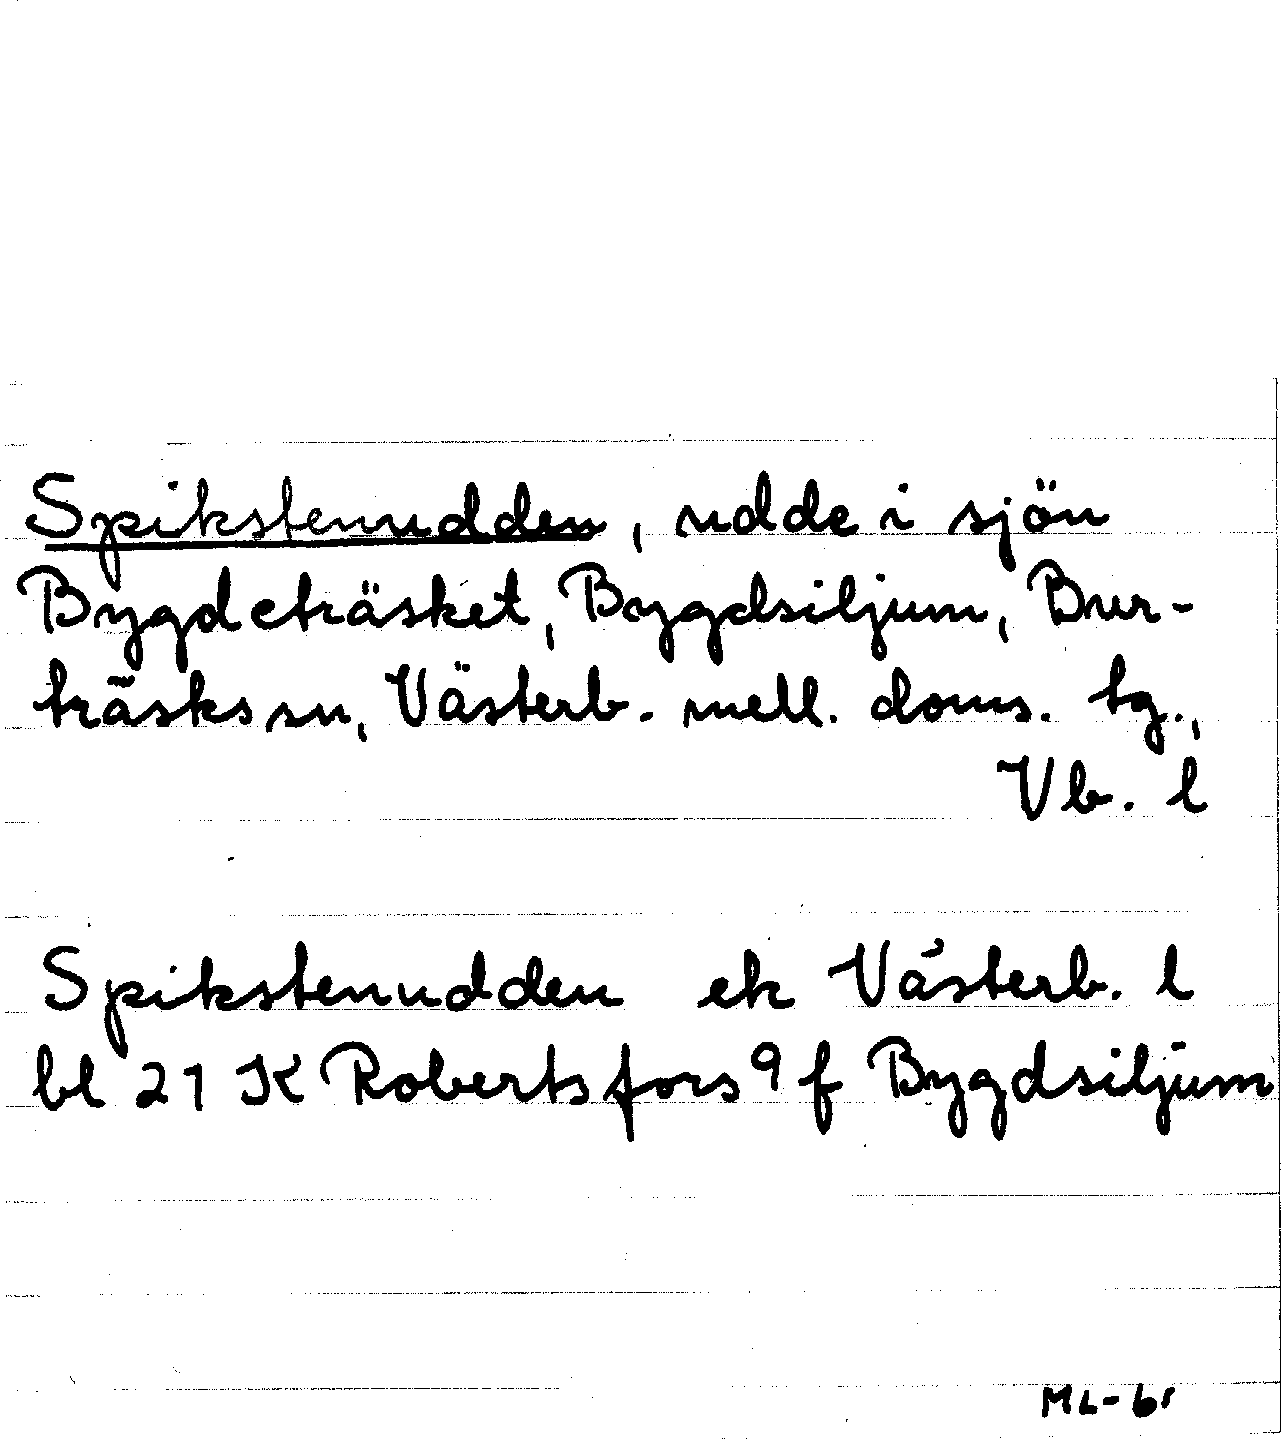 Spikstenudden, udde i sjön
Bygdeträsket, Bygdsiljum, Bur-
träsks sn, Västerb. mell. doms. tg.,
Vb. l
Spikstenudden ek Västerb. l
bl 21 K Robertsfors 9 f Bygdsiljum
ML-61